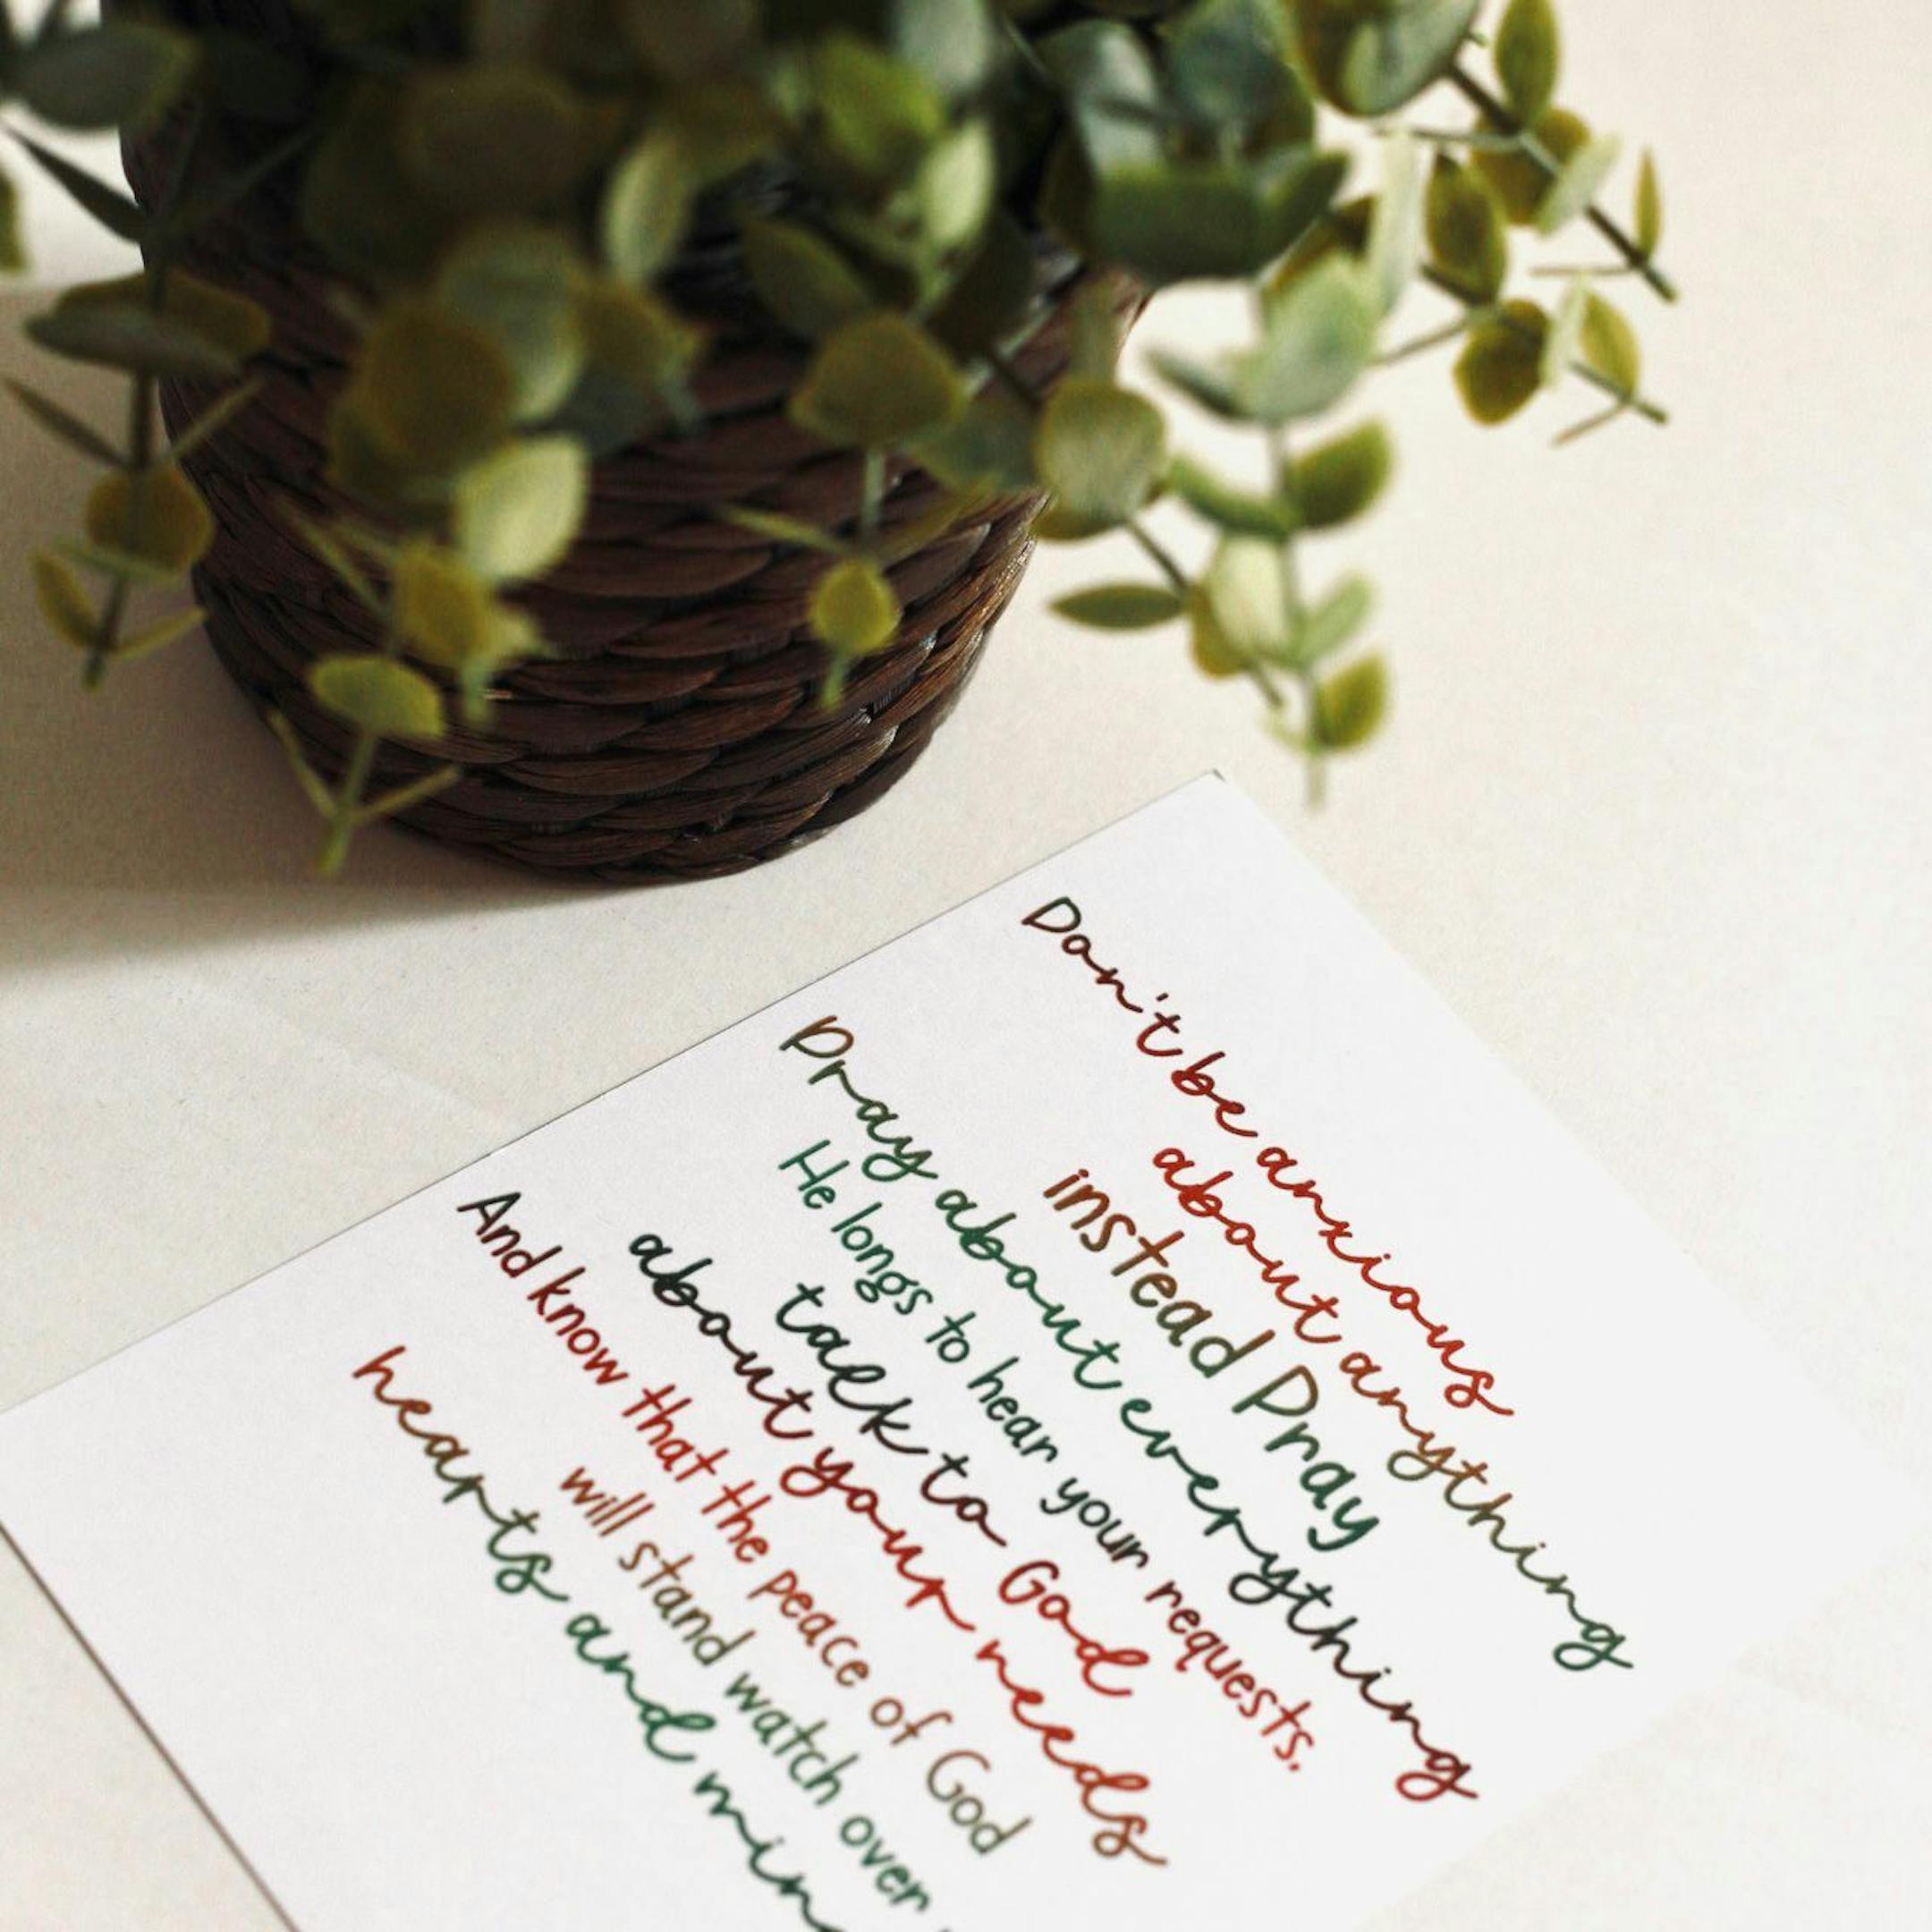 Don't be anxious
about anything
instead Pray
Pray about everything
He longs to hear your requests.
talk to God
about your needs
And know that the peace of God
will stand watch over
hearts and